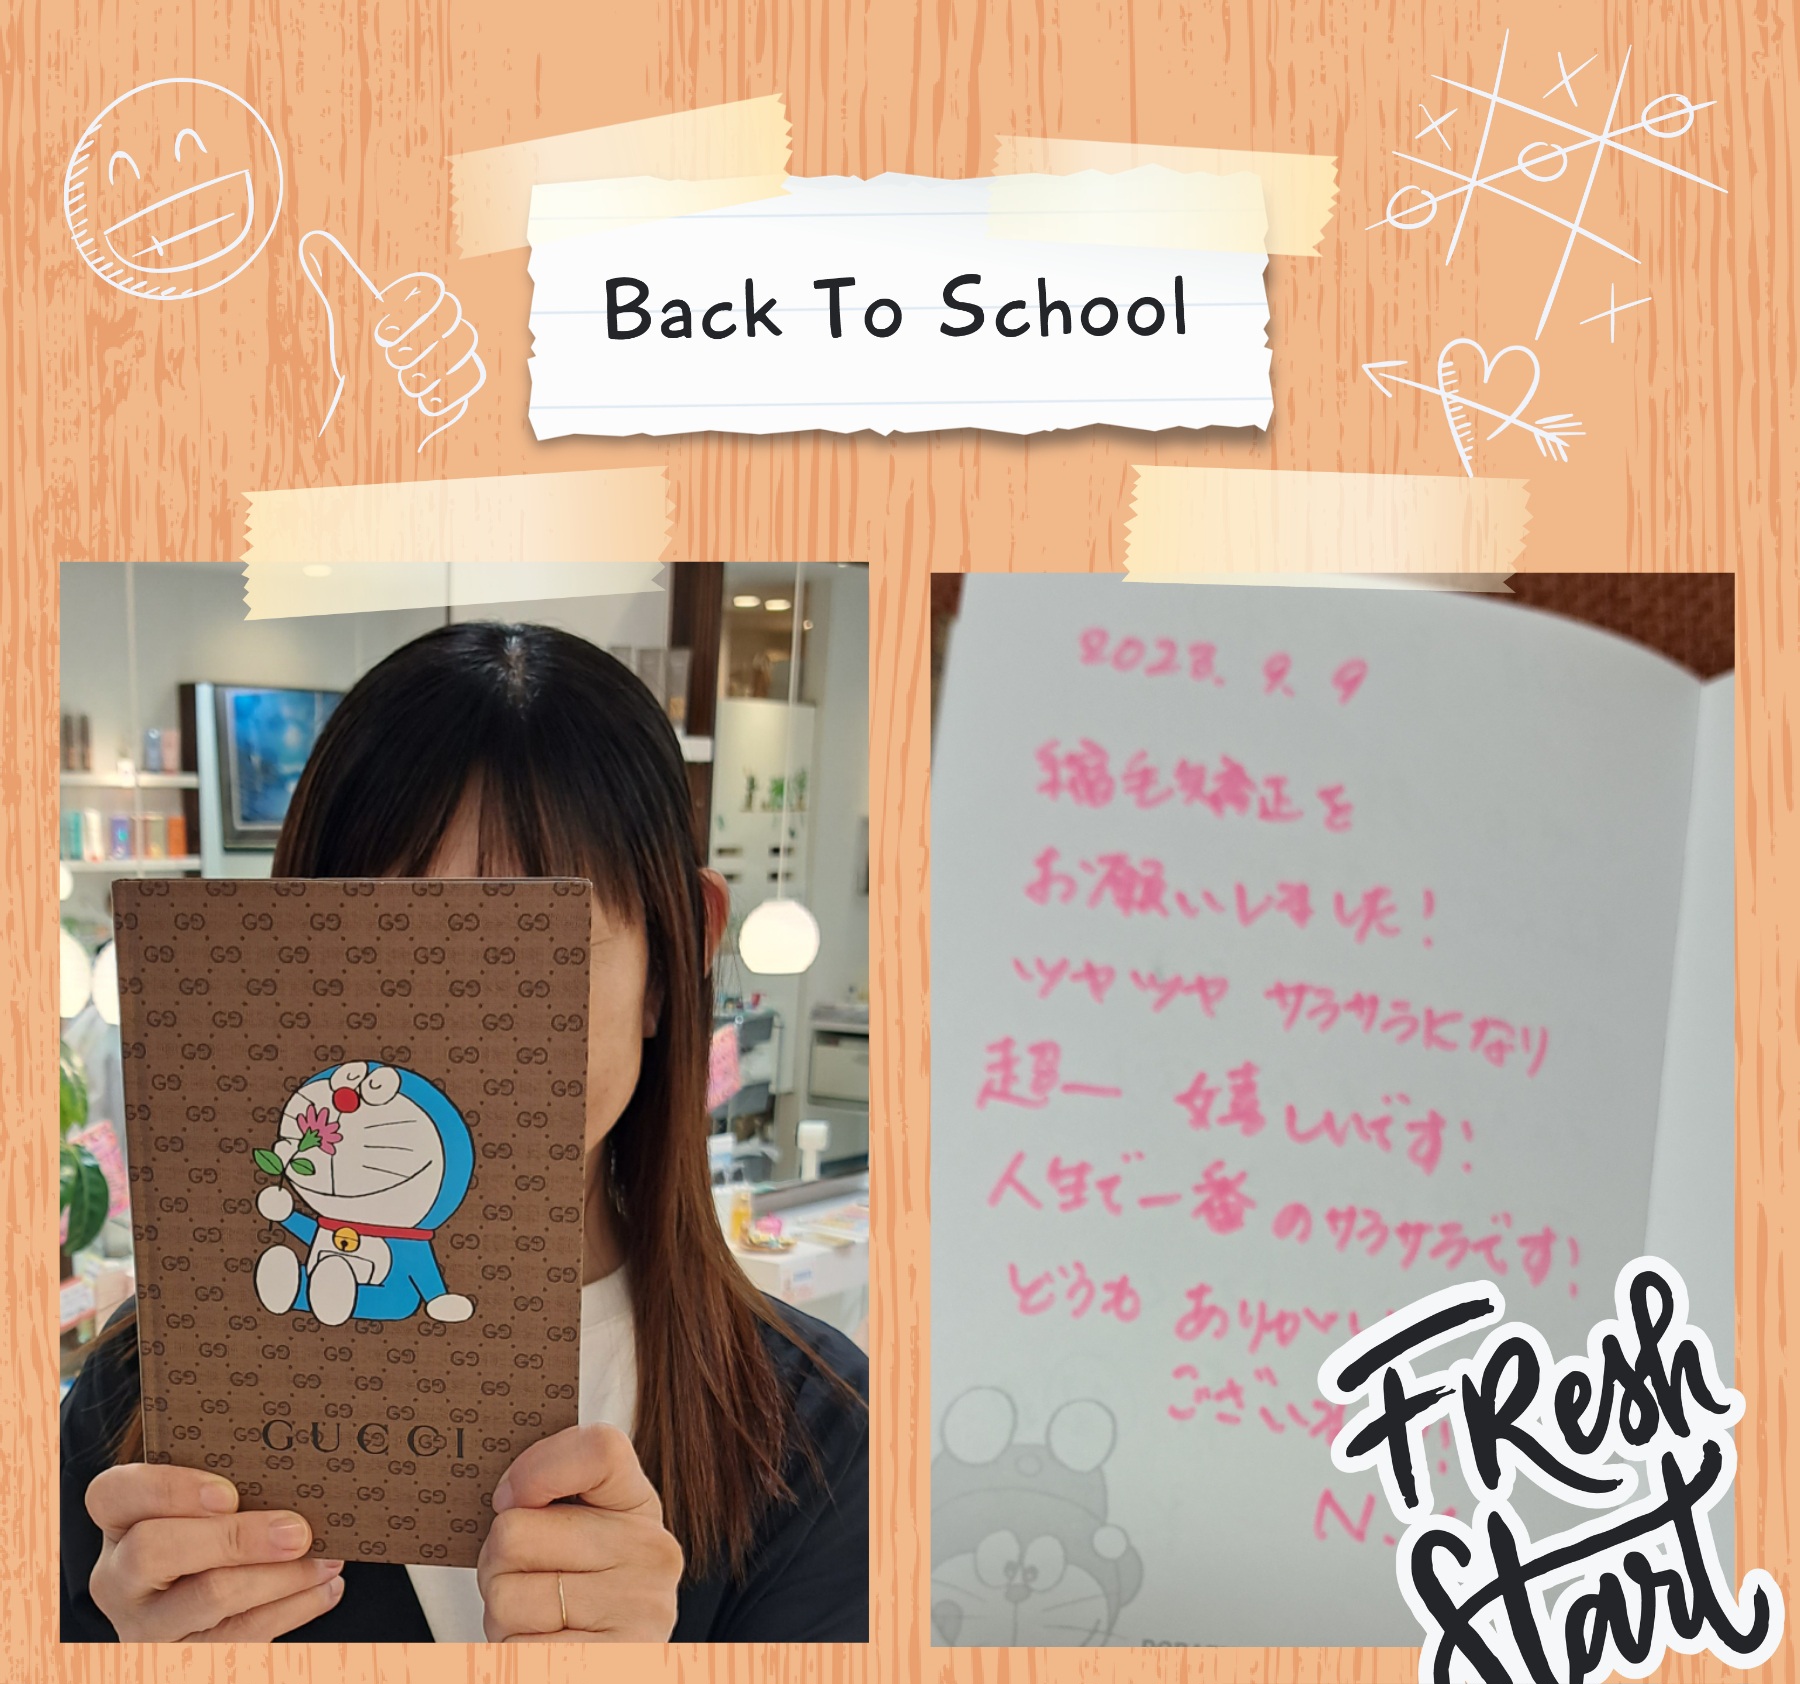 Back To School
GUCCI
2023. 9. 9
縮毛矯正を
お願いしました!
ツヤツヤ サラサラになり
超ー 嬉しいです!
人生で一番のサラサラです!
どうも ありがとう
ござい
N.
Fresh
Start